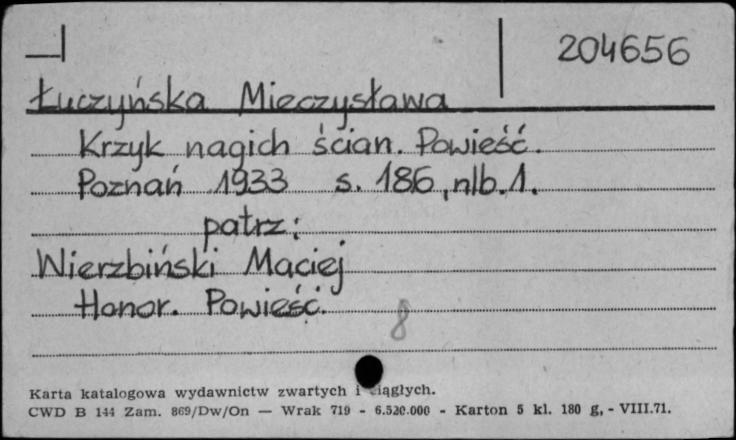 204656
Łuczyńska Mieczysława
Krzyk nagich ścian. Powieść.
Poznań 1933 s. 186, nlb. 1.
patrz:
Wierzbiński Maciej
Honor. Powieść.
8
Karta katalogowa wydawnictw zwartych i ciągłych.
CWD B 144 Zam. 869/Dw/On — Wrak 719 - 6.520.000 - Karton 5 kl. 180 g, - VIII.71.